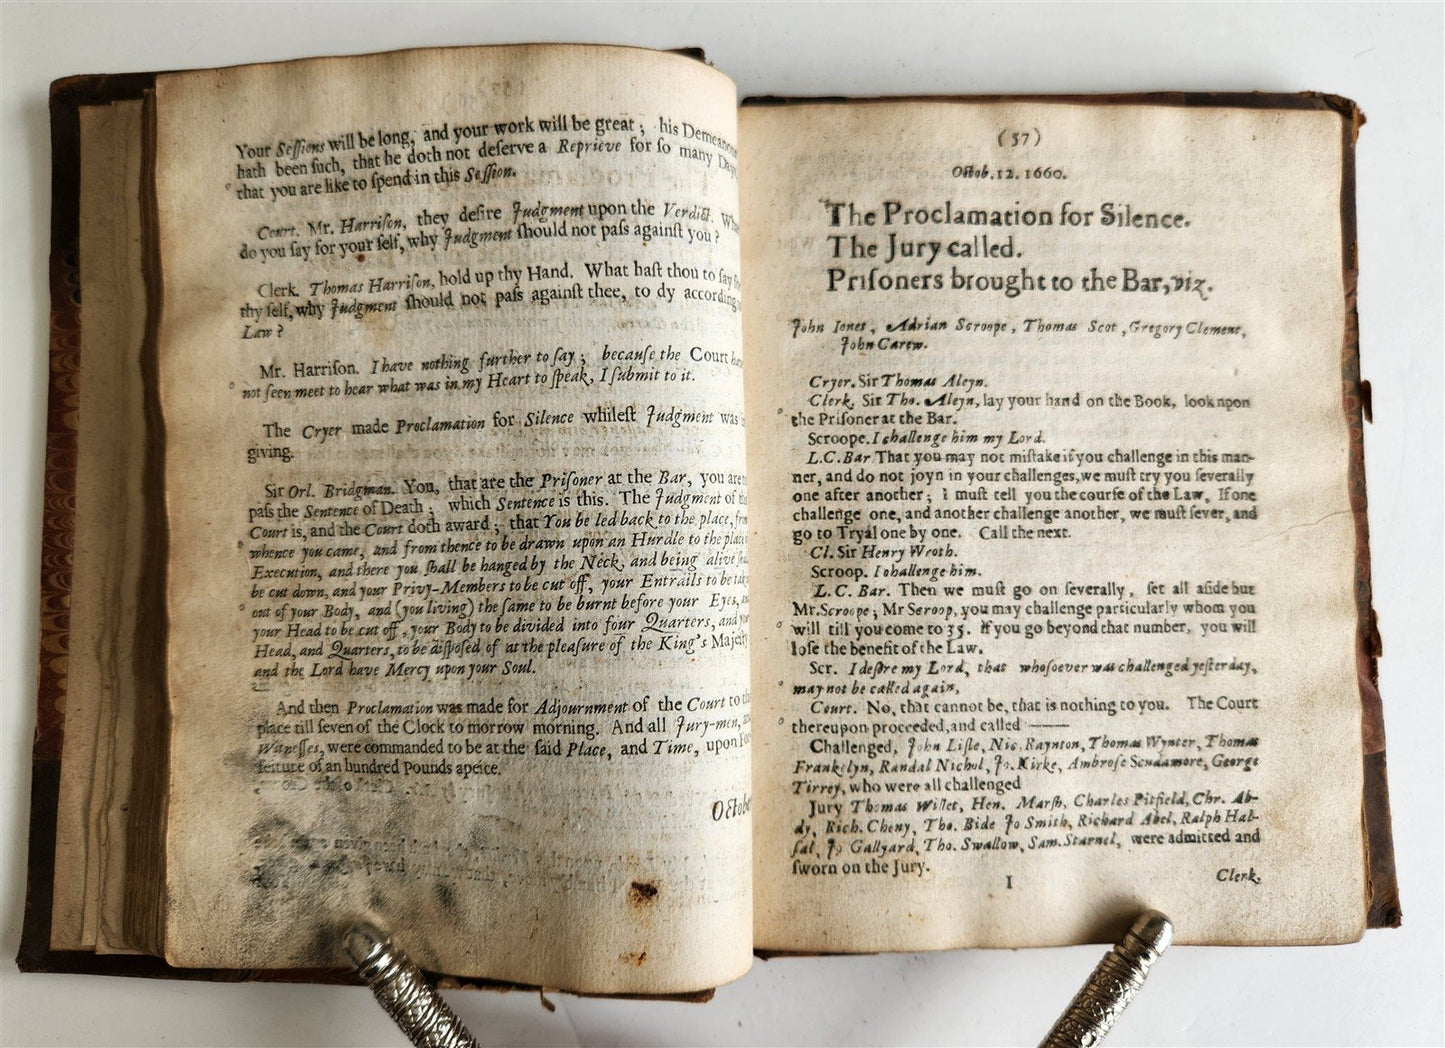 Your Seſſions will be long, and your work will be great; his Demeanour
hath been ſuch, that he doth not deſerve a Reprieve for ſo many Days
that you are like to ſpend in this Seſſion.
Court. Mr. Harriſon, they deſire Judgment upon the Verdict. What
do you ſay for your ſelf, why Judgment ſhould not paſs againſt you?
Clerk. Thomas Harriſon, hold up thy Hand. What haſt thou to ſay for
thy ſelf, why Judgment ſhould not paſs againſt thee, to dy according to
Law?
Mr. Harriſon. I have nothing further to ſay; becauſe the Court have
not ſeen meet to hear what was in my Heart to ſpeak, I ſubmit to it.
The Cryer made Proclamation for Silence whileſt Judgment was in
giving.
Sir Orl. Bridgman. You, that are the Priſoner at the Bar, you are to
paſs the Sentence of Death; which Sentence is this. The Judgment of the
Court is, and the Court doth award; that You be led back to the place, from
whence you came, and from thence to be drawn upon an Hurdle to the place
Execution, and there you ſhall be hanged by the Neck, and being alive ſhall
be cut down, and your Privy-Members to be cut off, your Entrails to be taken
out of your Body, and (you living) the ſame to be burnt before your Eyes, and
your Head to be cut off, your Body to be divided into four Quarters, and your
Head, and Quarters, to be diſpoſed of at the pleaſure of the King's Majeſty
and the Lord have Mercy upon your Soul.
And then Proclamation was made for Adjournment of the Court to this
place till ſeven of the Clock to morrow morning. And all Jury-men, and
Witneſſes, were commanded to be at the ſaid Place, and Time, upon For-
feiture of an hundred Pounds apeice.
Octobe
(57)
Octob. 12. 1660.
The Proclamation for Silence.
The Jury called.
Priſoners brought to the Bar, viz.
John Jones, Adrian Scroope, Thomas Scot, Gregory Clement,
John Carew.
Cryer. Sir Thomas Aleyn.
Clerk, Sir Tho. Aleyn, lay your hand on the Book, look upon
the Priſoner at the Bar.
Scroope. I challenge him my Lord.
L.C. Bar That you may not miſtake if you challenge in this man-
ner, and do not joyn in your challenges, we muſt try you ſeverally
one after another; I muſt tell you the courſe of the Law, If one
challenge one, and another challenge another, we muſt ſever, and
go to Tryal one by one. Call the next.
Cl. Sir Henry Wroth.
Scroop. I challenge him.
L. C. Bar. Then we muſt go on ſeverally, ſet all aſide but
Mr. Scroope; Mr Scroop, you may challenge particularly whom you
will till you come to 35. If you go beyond that number, you will
loſe the benefit of the Law.
Scr. I deſire my Lord, that whoſoever was challenged yeſterday,
may not be called again,
Court. No, that cannot be, that is nothing to you. The Court
thereupon proceeded, and called ——
Challenged, John Liſle, Nic. Raynton, Thomas Wynter, Thomas
Frankelyn, Randal Nichol, Jo. Kirke, Ambroſe Scudamore, George
Tirrey, who were all challenged
Jury Thomas Willet, Hen. Marſh, Charles Pitfield, Chr. Ab-
dy, Rich. Cheny, Tho. Bide Jo Smith, Richard Abel, Ralph Hal-
ſal, Jo Gallyard, Tho. Swallow, Sam. Starnel, were admitted and
ſworn on the Jury.
I
Clerk,